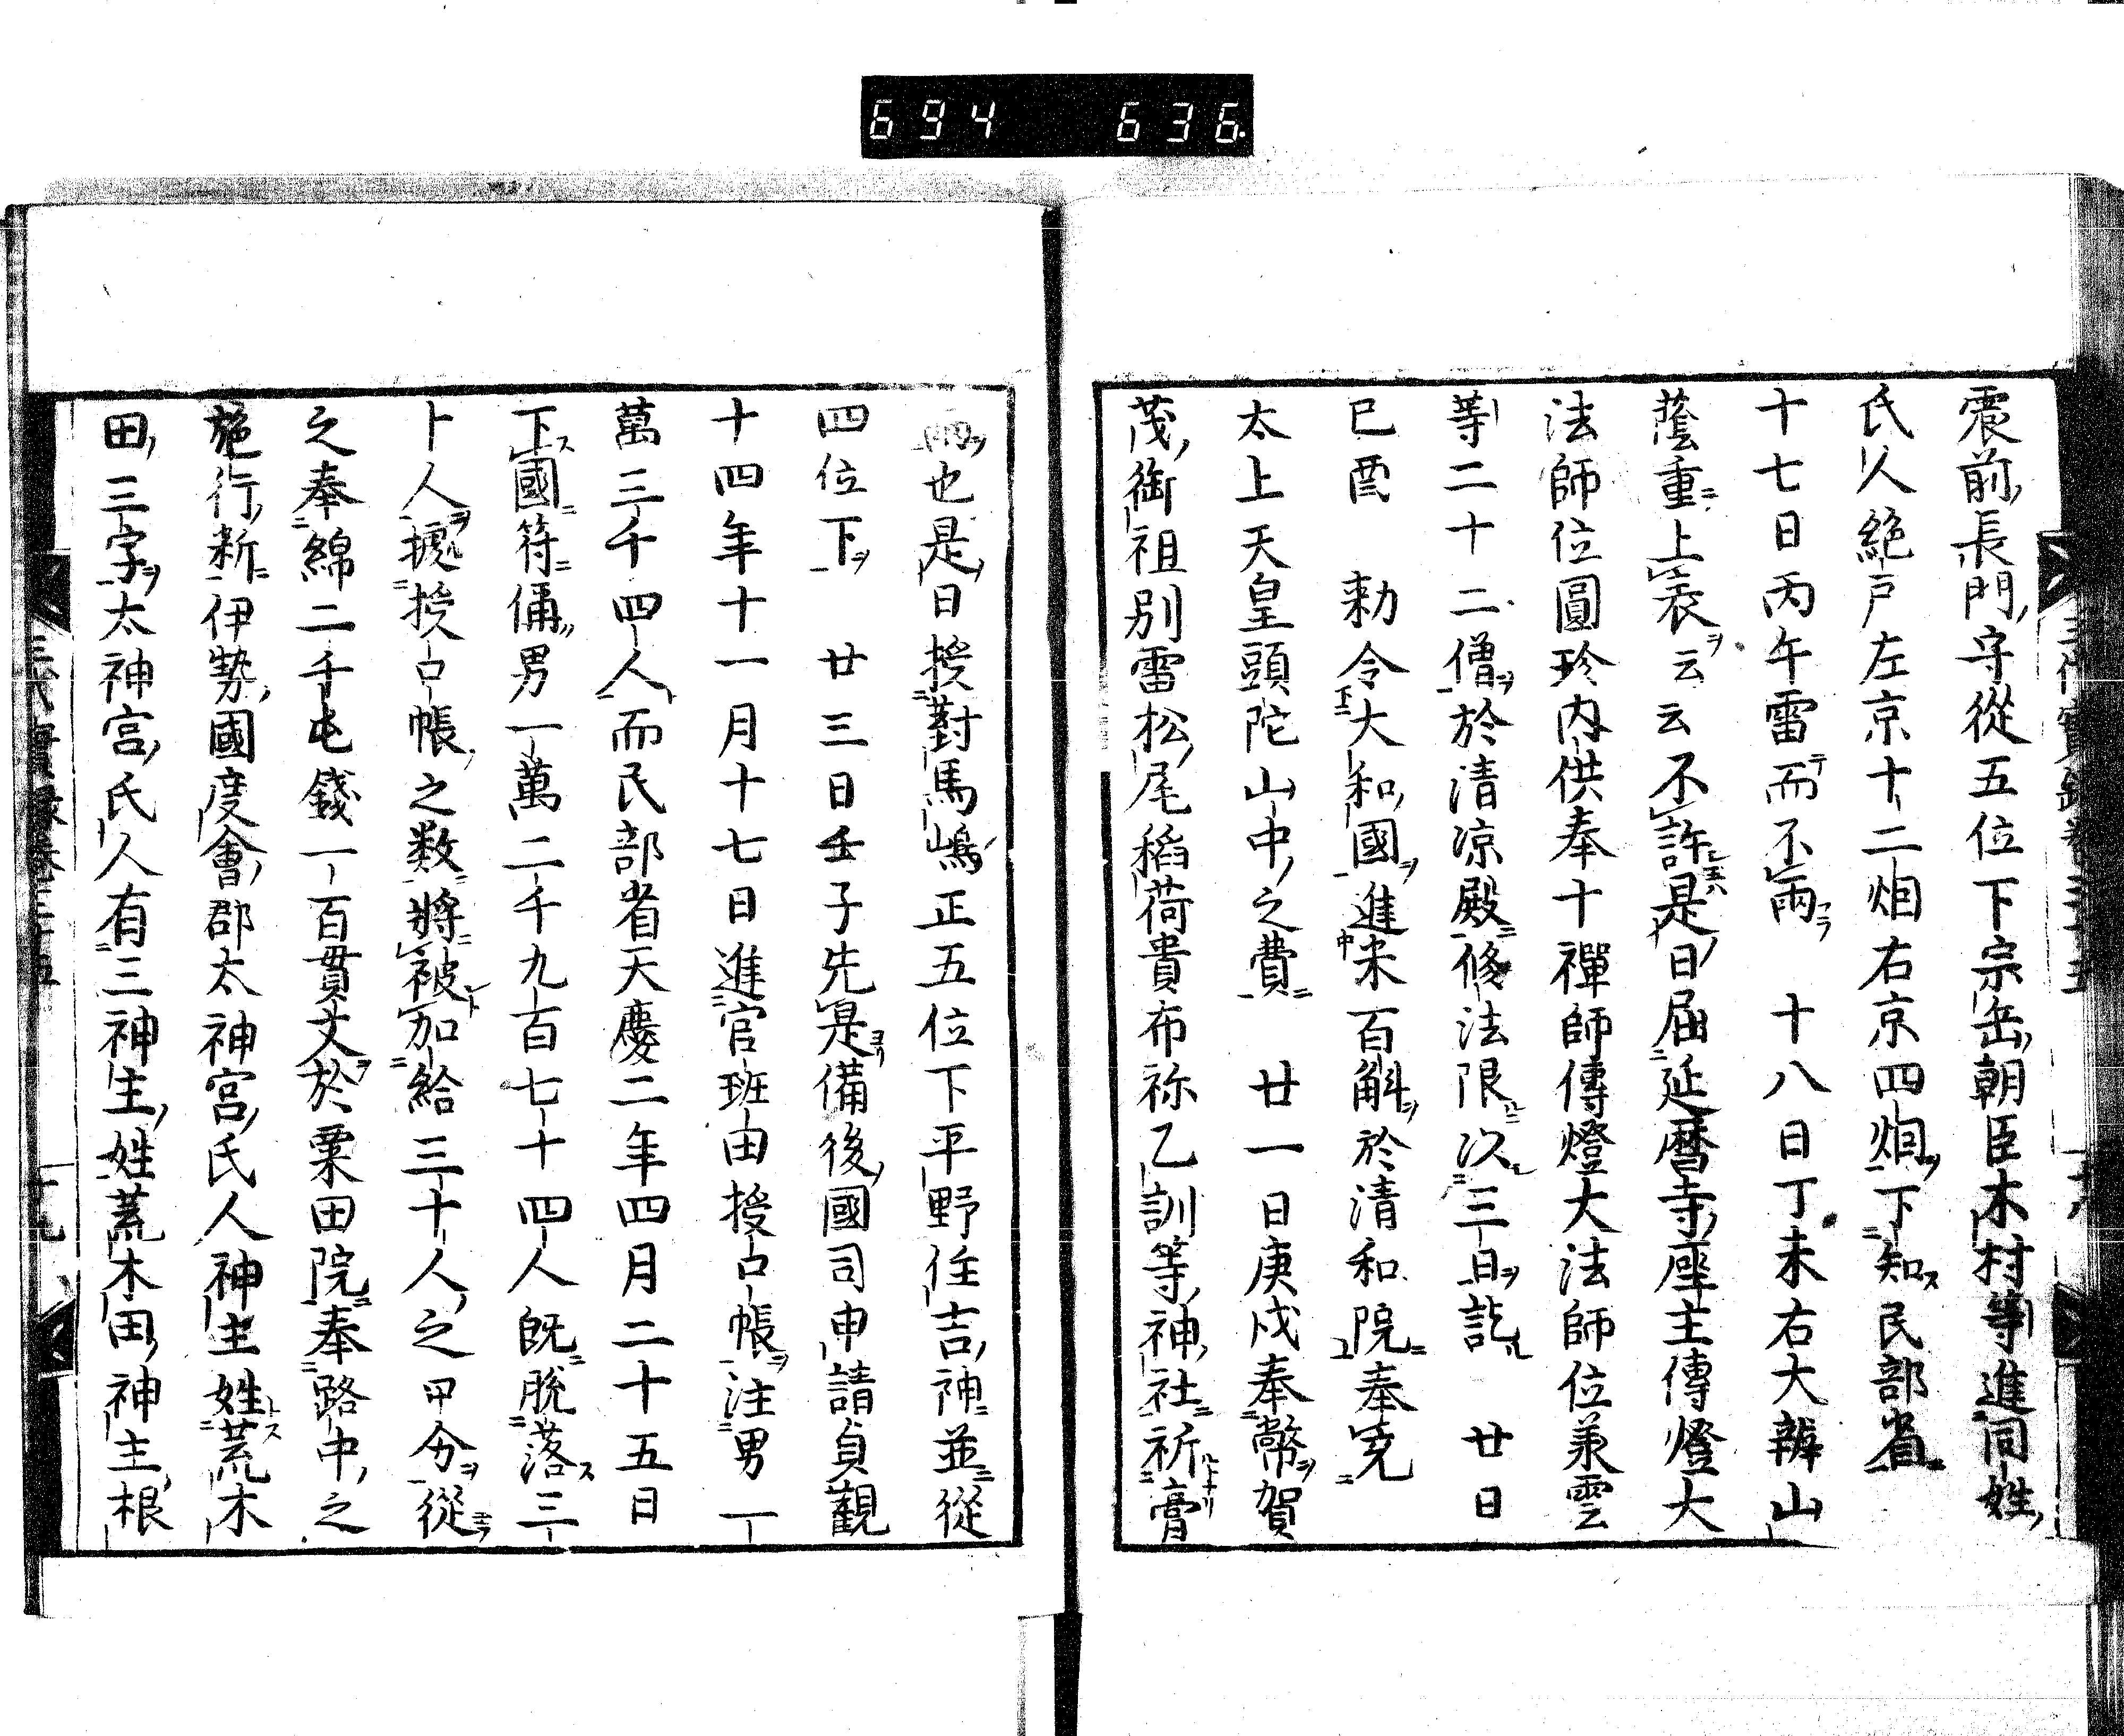 694 636
震前長門守從五位下宗岳朝臣木村等進同姓
氏人絶戸左京十二烟右京四烟下知民部省
十七日丙午雷而不雨 十八日丁未右大辨山
蔭重上表云云不許是日屈延暦寺座主傳燈大
法師位圓珍内供奉十禪師傳燈大法師位兼雲
等二十二僧於清凉殿修法限次三日訖 廿日
已酉 勅令大和國進米百斛於清和院奉充
太上天皇頭陀山中之費 廿一日庚戌奉幣賀
茂御祖別雷松尾稻荷貴布祢乙訓等神社祈膏
雨也是日授對馬嶋正五位下平野住吉神並從
四位下 廿三日壬子先是備後國司申請貞觀
十四年十一月十七日進官班田授口帳注男一
萬三千四人而民部省天慶二年四月二十五日
下國符偁男一萬二千九百七十四人既脱落三
十人據授口帳之数將被加給三十人之田分從
之奉綿二千屯錢一百貫文於粟田院奉路中之
施行新伊勢國度會郡太神宮氏人神主姓荒木
田三字太神宮氏人有三神主姓荒木田神主根